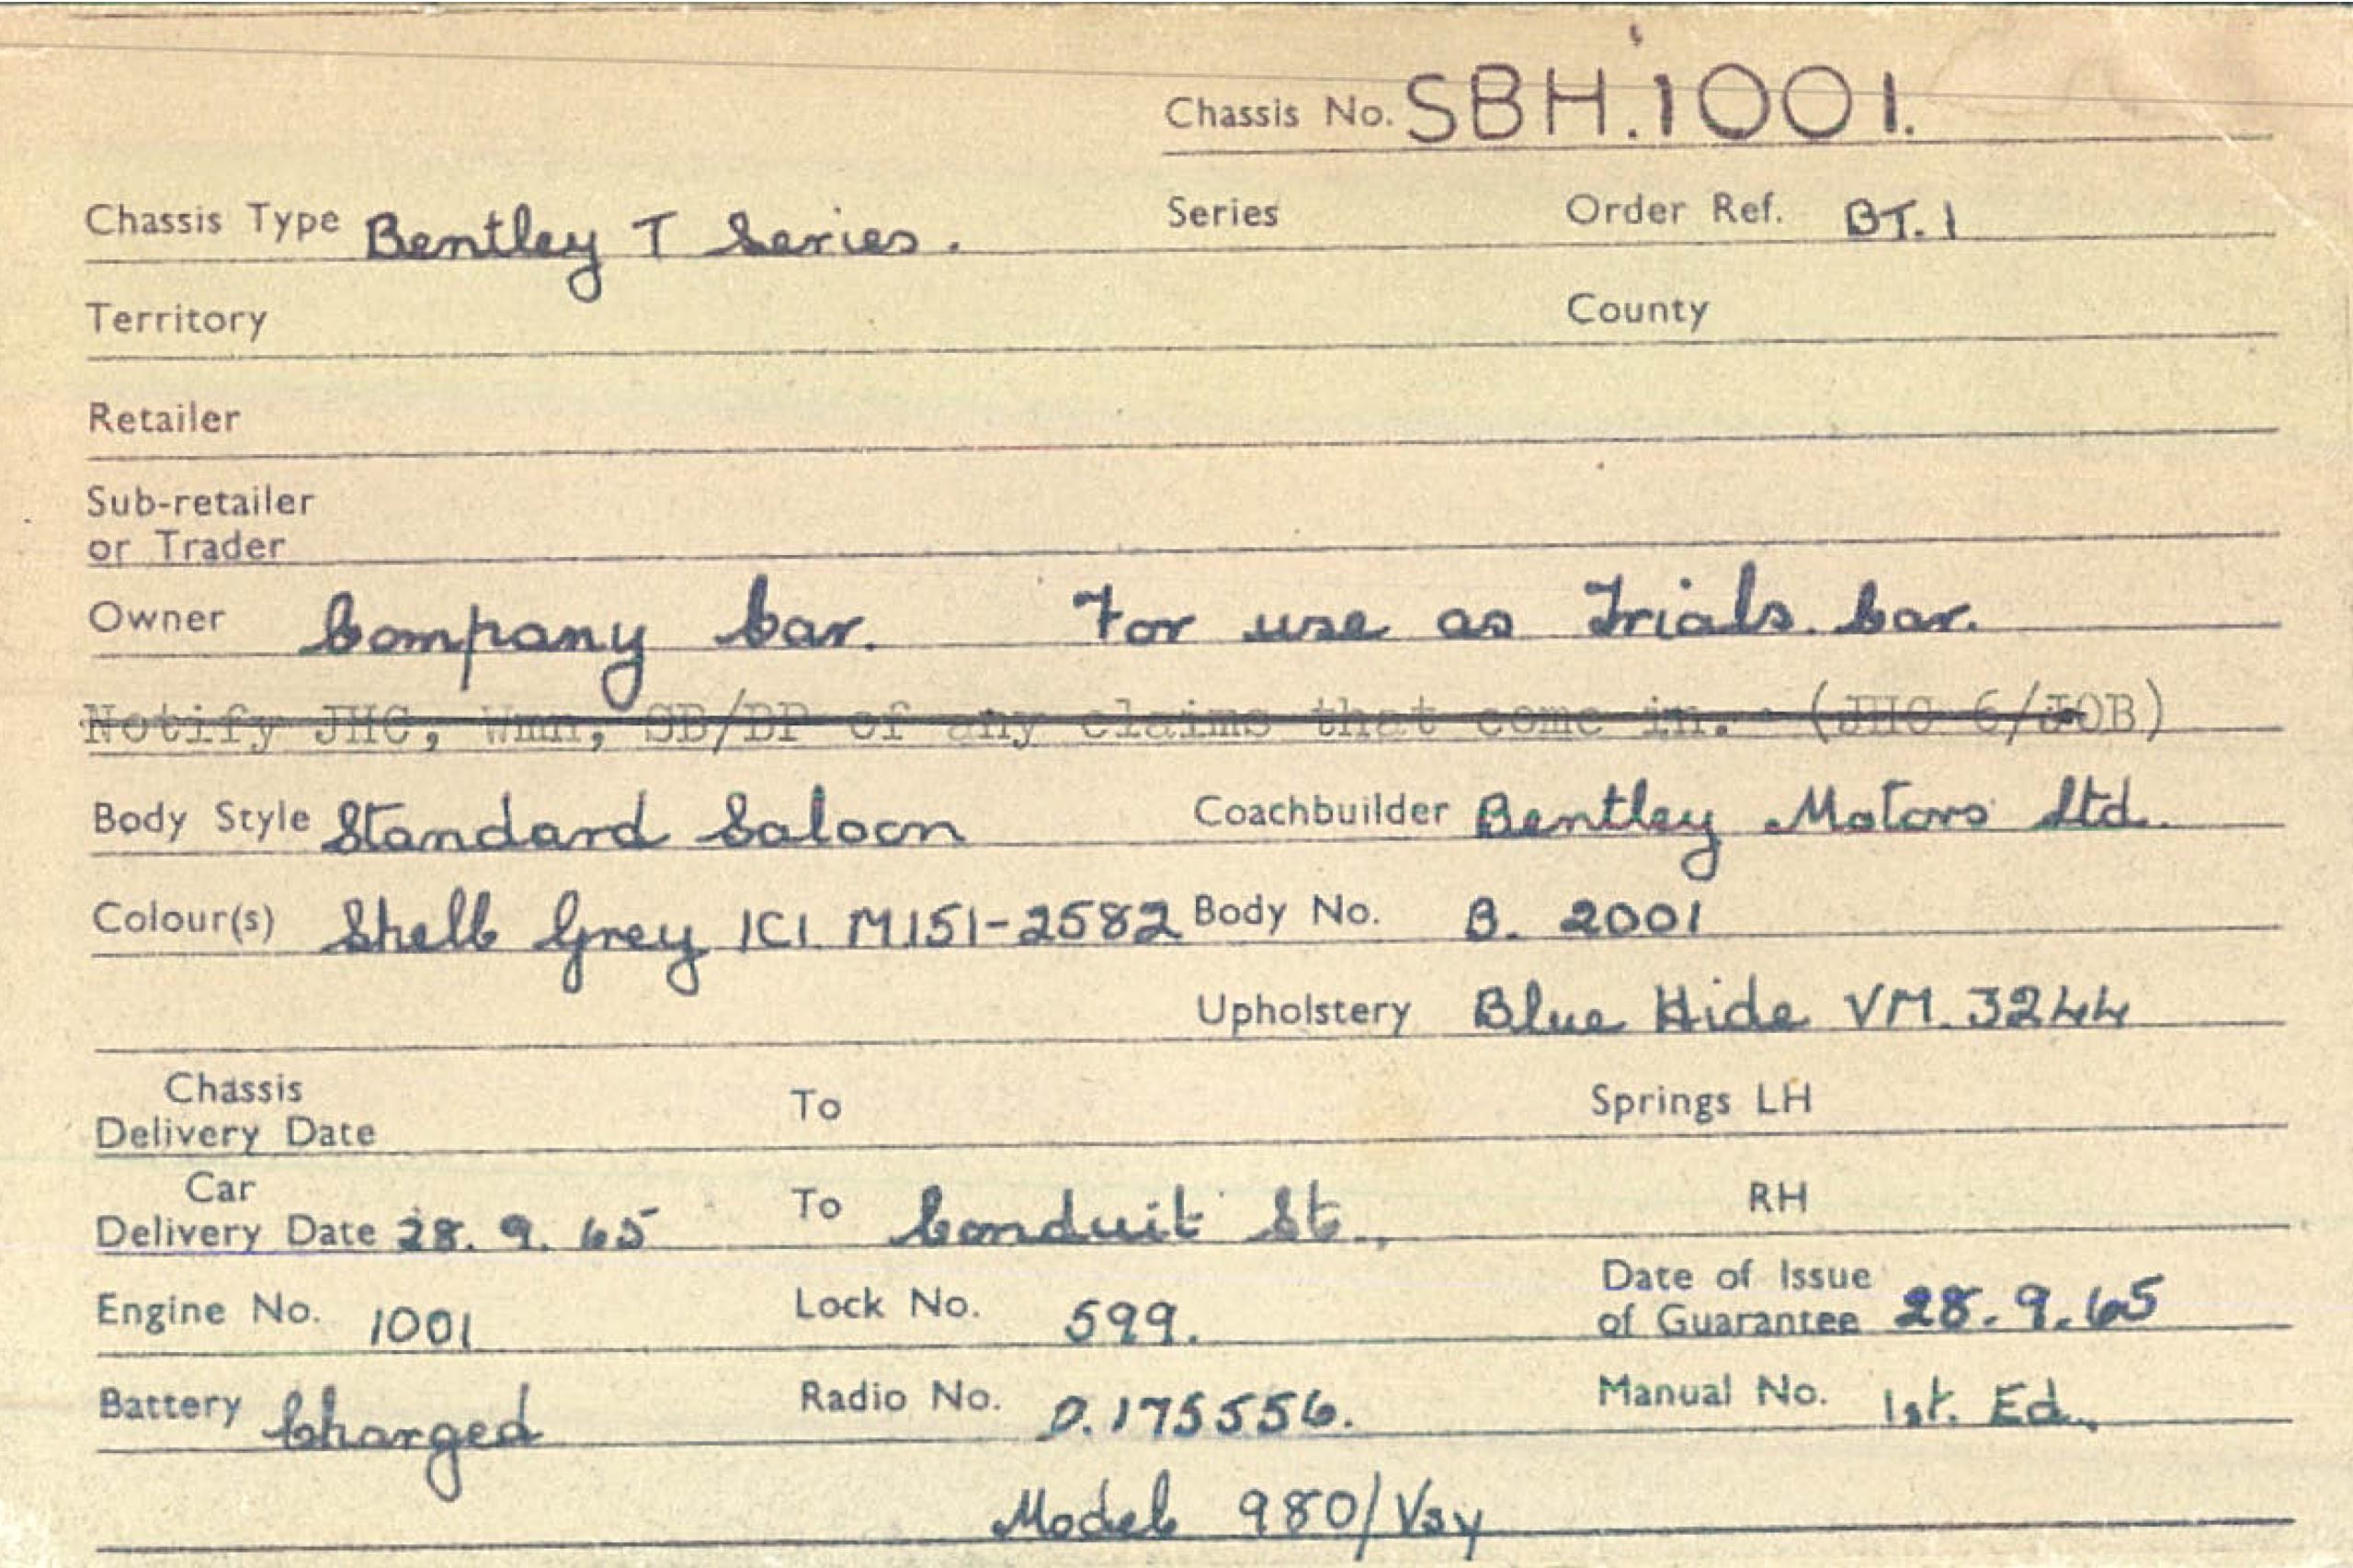 Chassis No. SBH.1001.
Chassis Type Bentley T Series. Series Order Ref. BT.1
Territory County
Retailer
Sub-retailer
or Trader
Owner Company Car. For use as Trials Car.
Notify JHC, Wmn, SB/BP of any claims that come in. (JHC 6/JOB)
Body Style Standard Saloon Coachbuilder Bentley Motors Ltd.
Colour(s) Shell Grey ICI M151-2582 Body No. B. 2001
Upholstery Blue Hide VM. 3244
Chassis
Delivery Date To Springs LH
Car
Delivery Date 28. 9. 65 To Conduit St., RH
Engine No. 1001 Lock No. 599. Date of Issue
of Guarantee 28.9.65
Battery Charged Radio No. D.175556. Manual No. 1st. Ed.,
Model 980/Vsy